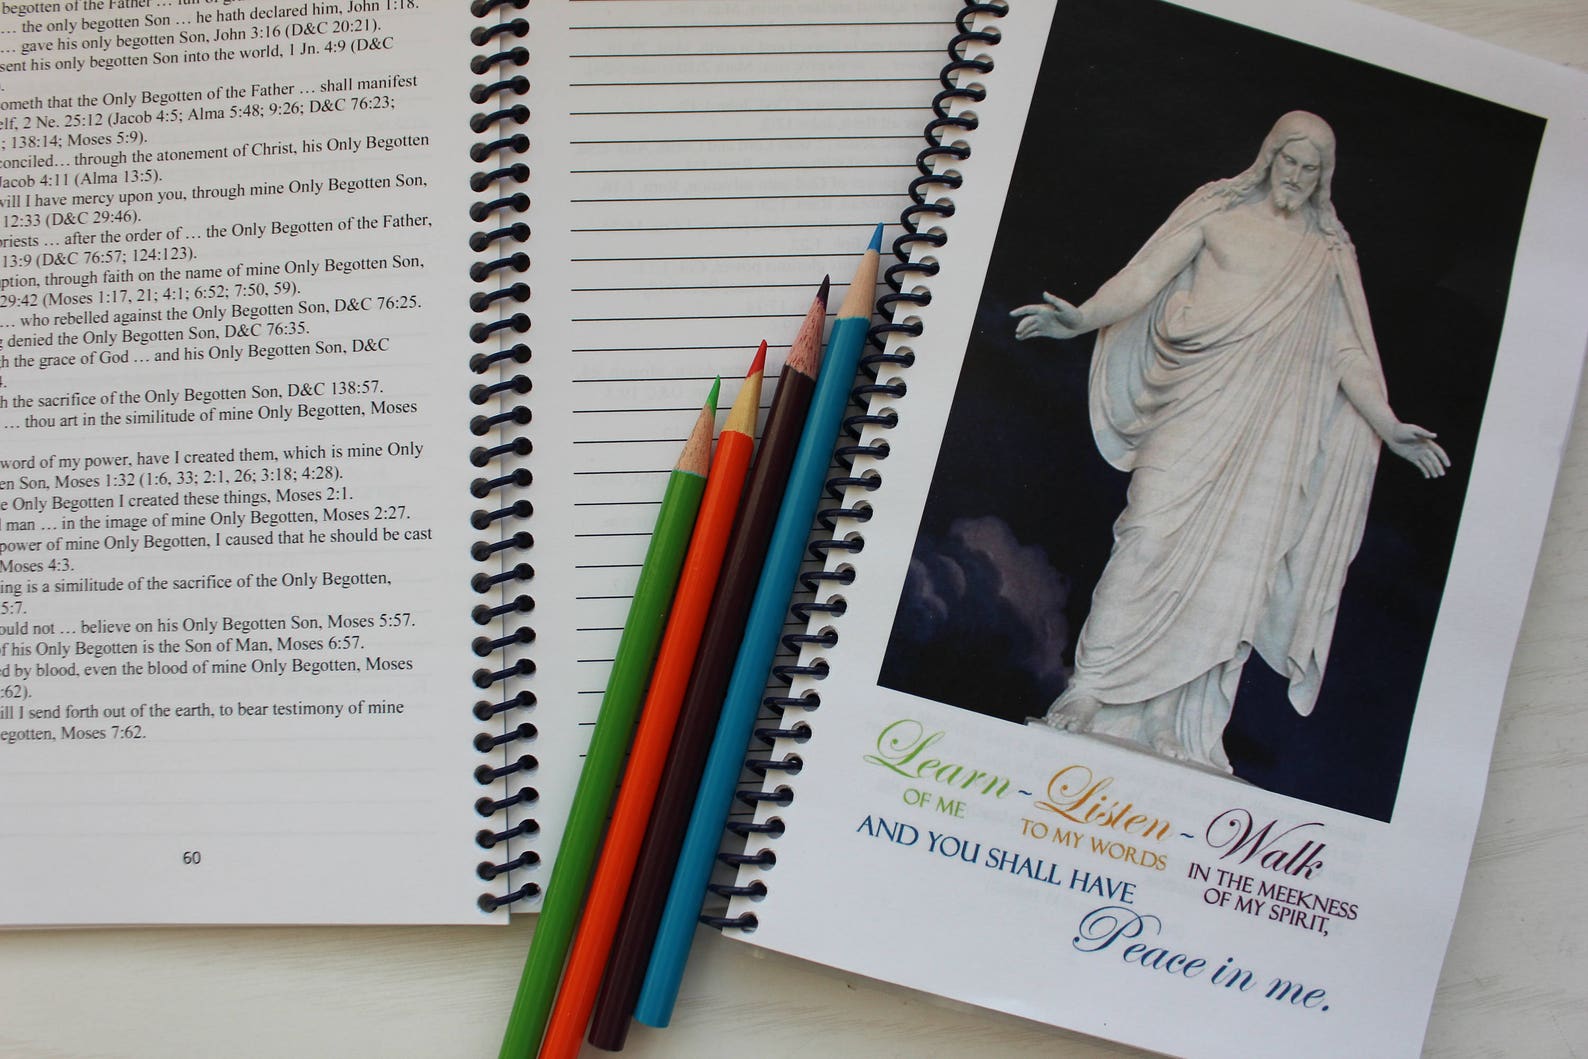 begotten of the Father …
… the only begotten Son … he hath declared him, John 1:18.
… gave his only begotten Son, John 3:16 (D&C 20:21).
sent his only begotten Son into the world, 1 Jn. 4:9 (D&C
ometh that the Only Begotten of the Father … shall manifest
elf, 2 Ne. 25:12 (Jacob 4:5; Alma 5:48; 9:26; D&C 76:23;
; 138:14; Moses 5:9).
conciled… through the atonement of Christ, his Only Begotten
Jacob 4:11 (Alma 13:5).
will I have mercy upon you, through mine Only Begotten Son,
12:33 (D&C 29:46).
priests … after the order of … the Only Begotten of the Father,
13:9 (D&C 76:57; 124:123).
ption, through faith on the name of mine Only Begotten Son,
29:42 (Moses 1:17, 21; 4:1; 6:52; 7:50, 59).
… who rebelled against the Only Begotten Son, D&C 76:25.
g denied the Only Begotten Son, D&C 76:35.
h the grace of God … and his Only Begotten Son, D&C
4.
h the sacrifice of the Only Begotten Son, D&C 138:57.
… thou art in the similitude of mine Only Begotten, Moses
word of my power, have I created them, which is mine Only
en Son, Moses 1:32 (1:6, 33; 2:1, 26; 3:18; 4:28).
e Only Begotten I created these things, Moses 2:1.
man … in the image of mine Only Begotten, Moses 2:27.
power of mine Only Begotten, I caused that he should be cast
Moses 4:3.
ing is a similitude of the sacrifice of the Only Begotten,
5:7.
ould not … believe on his Only Begotten Son, Moses 5:57.
of his Only Begotten is the Son of Man, Moses 6:57.
ed by blood, even the blood of mine Only Begotten, Moses
:62).
ill I send forth out of the earth, to bear testimony of mine
egotten, Moses 7:62.
60
Learn ~ Listen ~ Walk
OF ME TO MY WORDS IN THE MEEKNESS
OF MY SPIRIT,
AND YOU SHALL HAVE
Peace in me.